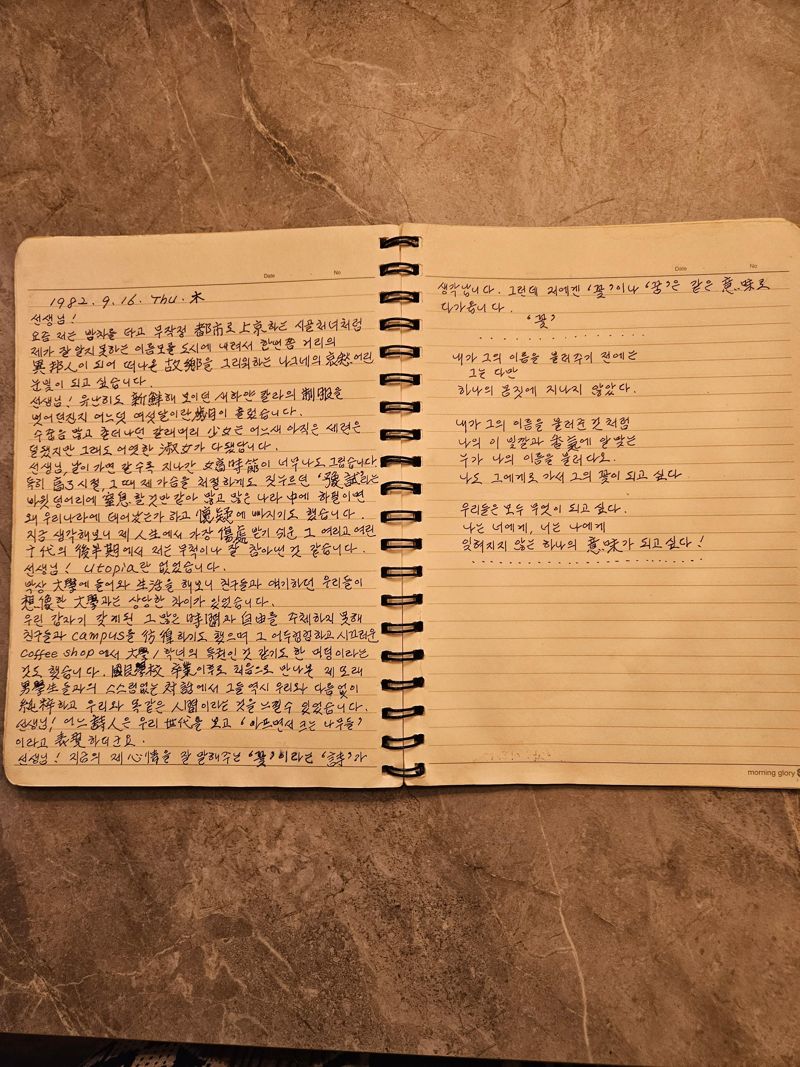 Date No
1982. 9. 16. Thu. 木
선생님!
요즘 저는 밤차를 타고 무작정 都市로 上京하는 시골처녀처럼
제가 잘 알지 못하는 이름모를 도시에 내려서 한번쯤 거리의
異邦人이 되어 떠나온 故鄕을 그리워하는 나그네의 哀愁 어린
눈빛이 되고 싶습니다.
선생님! 유난히도 新鮮해 보이던 새하얀 칼라의 制服을
벗어던진지 어느덧 여섯달이란 歲月이 흘렀습니다.
수줍음 많고 촌티나던 갈래머리 少女는 어느새 아직은 세련은
덜됐지만 그래도 어엿한 淑女가 다됐답니다.
선생님, 날이 가면 갈수록 지나간 女高時節이 너무나도 그립습니다.
특히 高3시절, 그때 제 가슴을 처절하게도 짓누르던 '豫試'라는
바윗덩어리에 窒息할것만 같아 많고 많은 나라 中에 하필이면
왜 우리나라에 태어났는가 하고 懷疑에 빠지기도 했습니다.
지금 생각해보니 제 人生에서 가장 傷處받기 쉬운 그 여리고 여린
十代의 後半期에서 저는 무척이나 잘 참아낸 것 같습니다.
선생님! utopia란 없었습니다.
막상 大學에 들어와 生活을 해보니 친구들과 얘기하던 우리들이
想像한 大學과는 상당한 차이가 있었습니다.
우린 갑자기 갖게된 그 많은 時間과 自由를 주체하지 못해
친구들과 campus를 彷徨하기도 했으며 그 어두컴컴하고 시끄러운
coffee shop에서 大學 1학년의 특권인 것 같기도 한 미팅이라는
것도 했습니다. 國民學校 卒業이후로 처음으로 만나본 제 또래
男學生들과의 스스럼없는 対話에서 그들 역시 우리와 다름없이
純粹하고 우리와 똑같은 人間이라는 것을 느낄수 있었습니다.
선생님! 어느 詩人은 우리 世代를 보고 '아프면서 크는 나무들'
이라고 表現하더군요.
선생님! 지금의 제 心情을 잘 말해주는 '꽃'이라는 '詩'가
Date No
생각납니다. 그런데 저에겐 '꽃'이나 '꿈'은 같은 意味로
다가옵니다.
'꽃'
내가 그의 이름을 불러주기 전에는
그는 다만
하나의 몸짓에 지나지 않았다.
내가 그의 이름을 불러준 것처럼
나의 이 빛깔과 香氣에 알맞는
누가 나의 이름을 불러다오.
나도 그에게로 가서 그의 꽃이 되고 싶다
우리들은 모두 무엇이 되고 싶다.
나는 너에게, 너는 나에게
잊혀지지 않는 하나의 意味가 되고 싶다!
morning glory